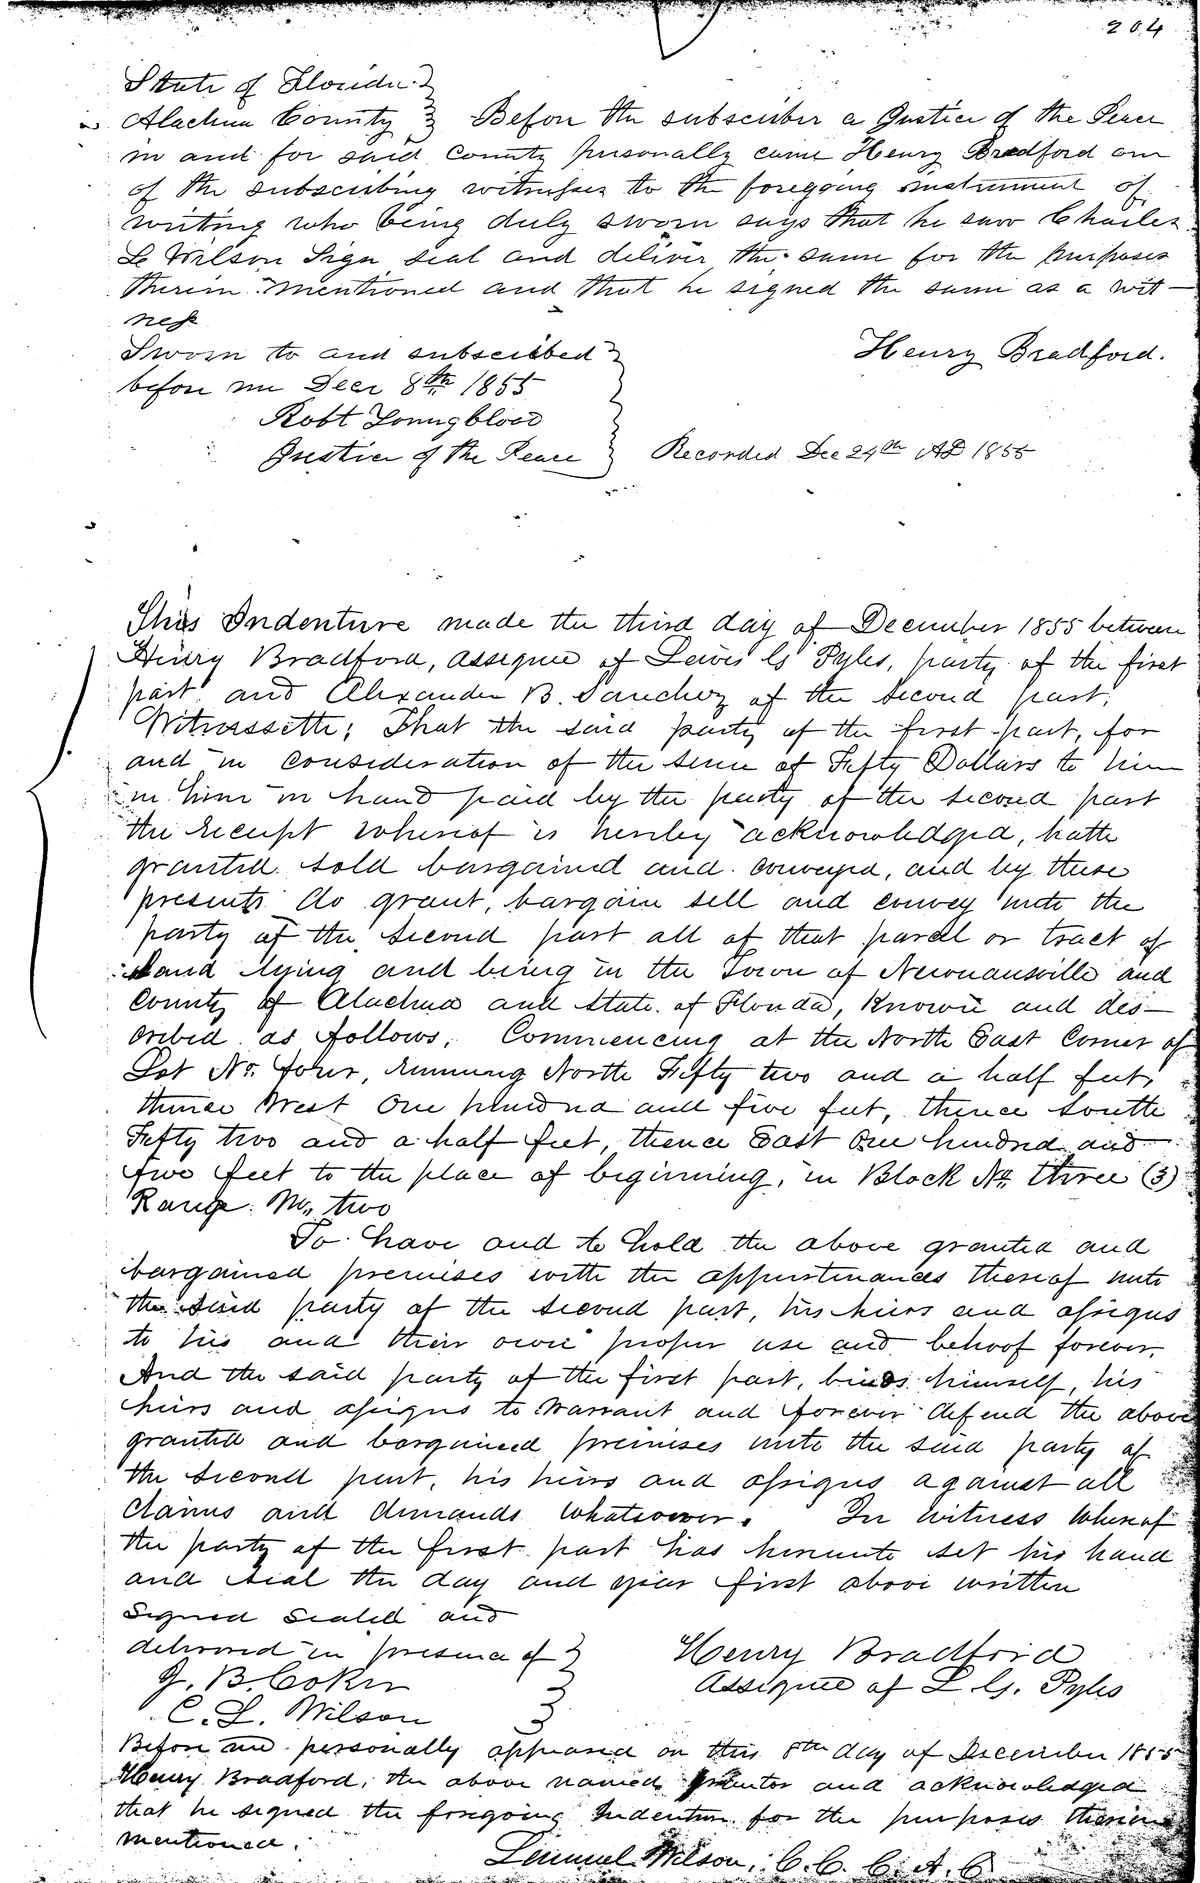 204
State of Florida
Alachua County Before the subscriber a Justice of the Peace
in and for said county personally came Henry Bradford one
of the subscribing witnesses to the foregoing instrument of
writing who being duly sworn says that he saw Charles
L Wilson Sign seal and deliver the same for the purposes
therein mentioned and that he signed the same as a wit-
ness
Sworn to and subscribed Henry Bradford.
before me Decr 8th 1855
Robt Youngblood
Justice of the Peace Recorded Dec 24th AD 1855
This Indenture made the third day of December 1855 between
Henry Bradford, assignee of Lewis G Pyles, party of the first
part and Alexander B. Sanchez of the second part,
Witnesseth; That the said party of the first part, for
and in consideration of the sum of Fifty Dollars to him
in him in hand paid by the party of the second part
the receipt whereof is hereby acknowledged, hath
granted sold bargained and conveyed, and by these
presents do grant, bargain sell and convey unto the
party of the second part all of that parcel or tract of
Land lying and being in the Town of Newnansville and
County of Alachua and State of Florida, Known and des-
cribed as follows, Commencing at the North East Corner of
Lot No. four, running North Fifty two and a half feet,
thence West One hundred and five feet, thence South
Fifty two and a half feet, thence East One hundred and
five feet to the place of beginning, in Block No. three (3)
Range No. two
To have and to hold the above granted and
bargained premises with the appurtenances thereof unto
the said party of the second part, his heirs and assigns
to his and their own proper use and behoof forever.
And the said party of the first part, binds himself, his
heirs and assigns to warrant and forever defend the above
granted and bargained premises unto the said party of
the second part, his heirs and assigns against all
claims and demands whatsoever. In witness whereof
the party of the first part has hereunto set his hand
and seal the day and year first above written
Signed Sealed and
delivered in presence of Henry Bradford
J. B. Coker Assignee of L. G. Pyles
C. L. Wilson
Before me personally appeared on this 8th day of December 1855
Henry Bradford, the above named grantor and acknowledged
that he signed the foregoing Indenture for the purposes therein
mentioned.
Lemuel Wilson, C. C. C. A. C